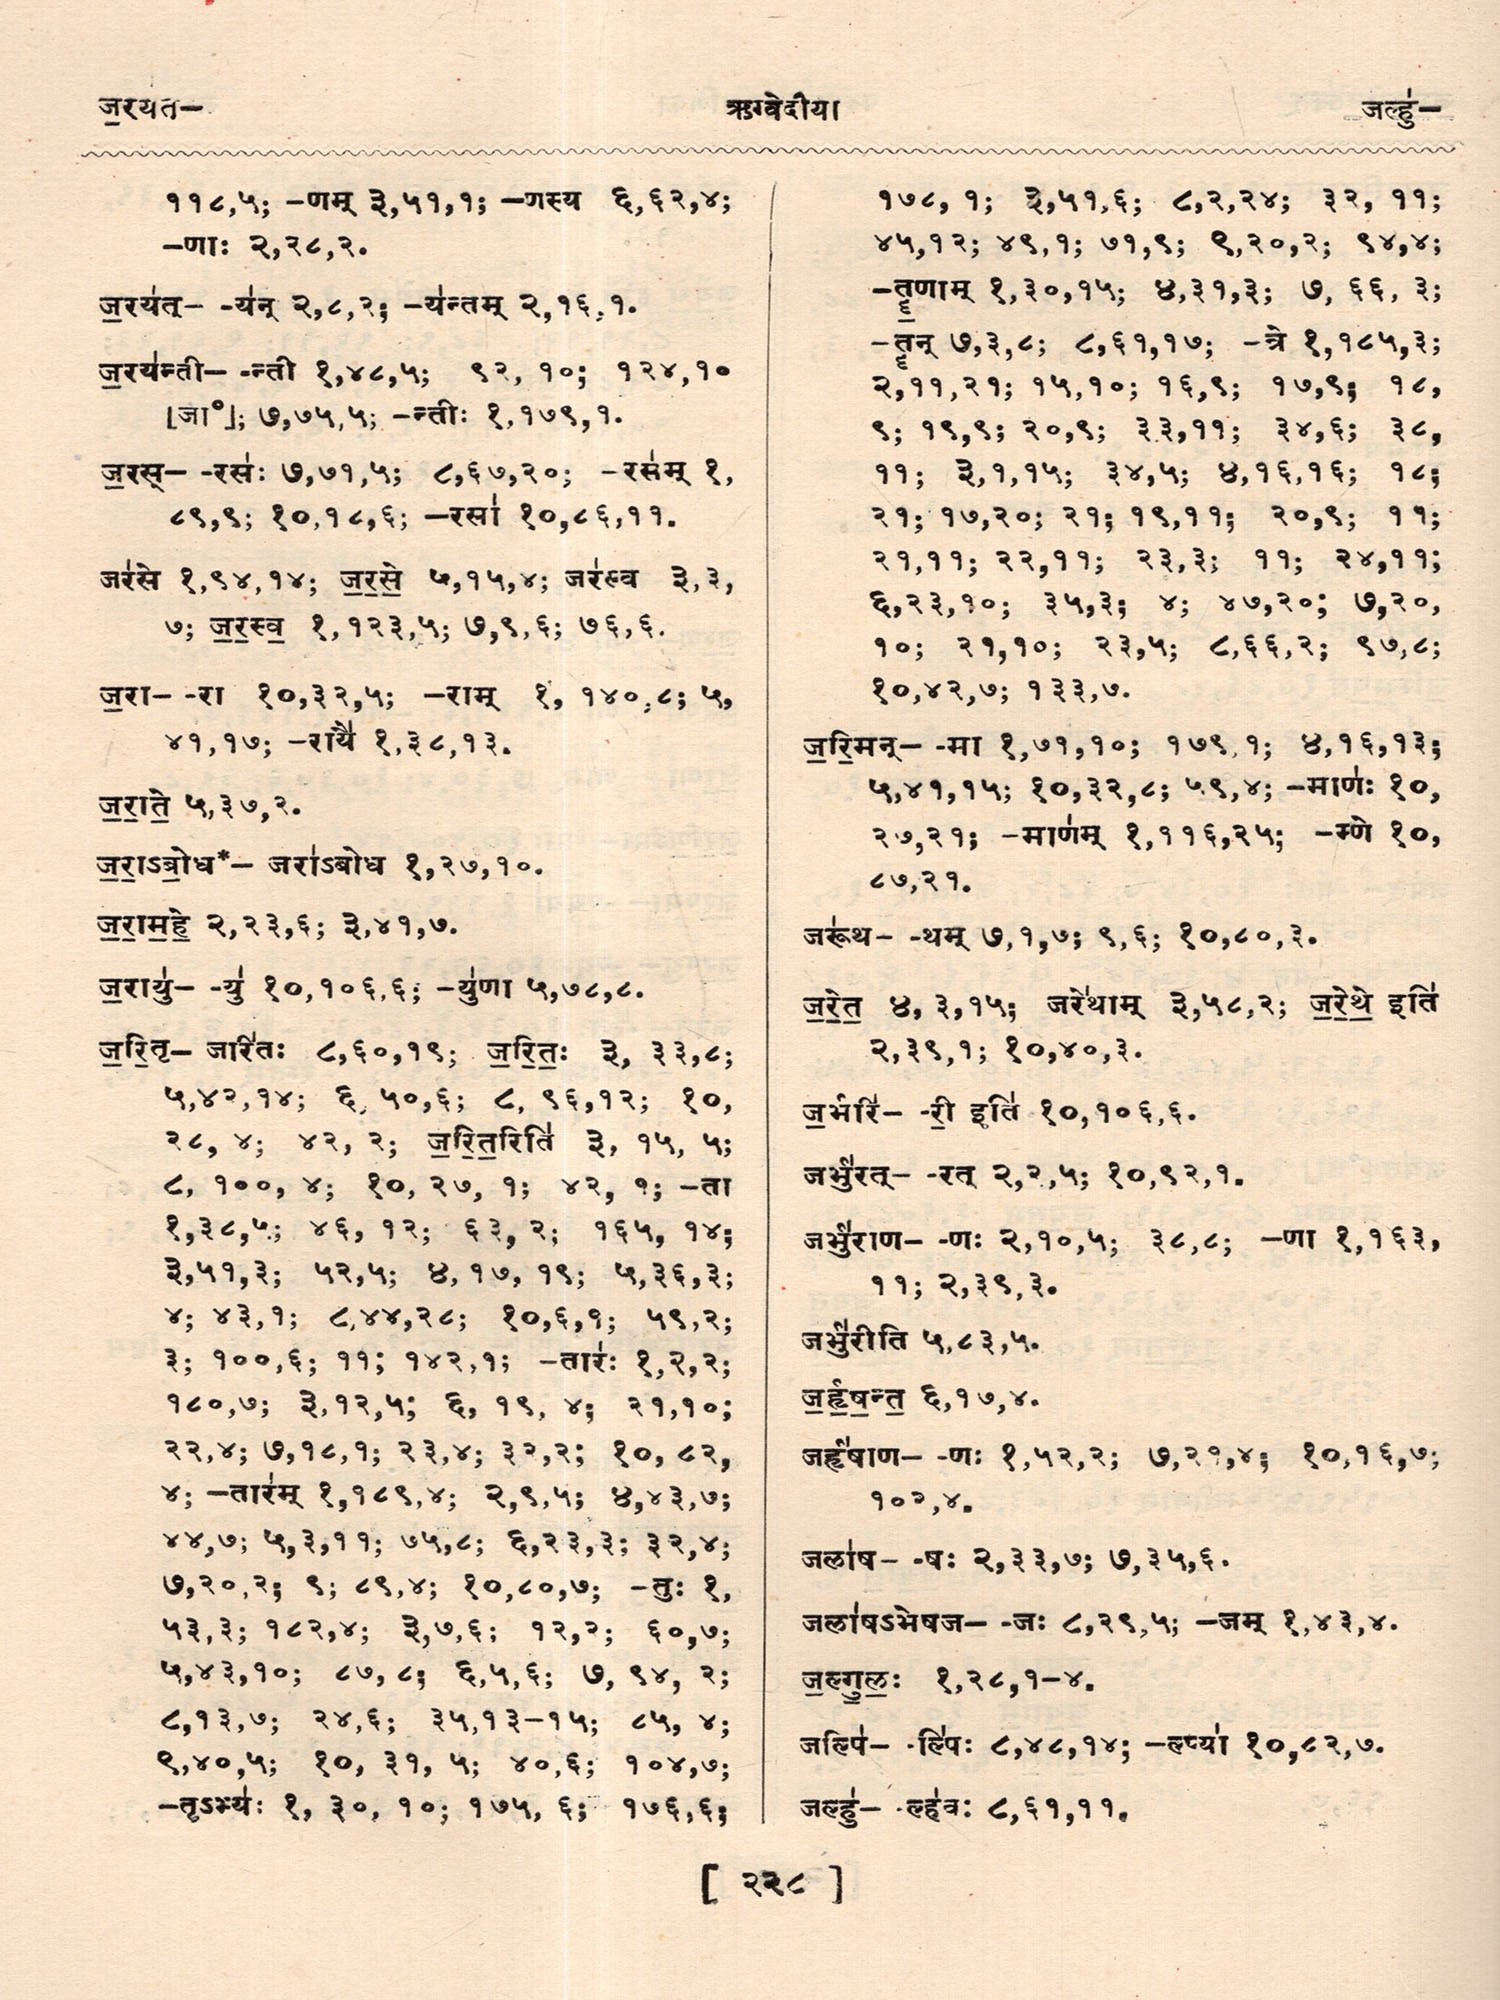 ज॒रयत– ऋग्वेदीया जल्हु॑–
११८,५; –णम् ३,५१,१; –णस्य ६,६२,४;
–णाः २,२८,२.
ज॒रय॑त्– -य॑न् २,८,२; –य॑न्तम् २,१६,१.
ज॒रय॑न्ती– -न्ती १,४८,५; ९२, १०; १२४,१०
[जा°]; ७,७५,५; –न्तीः १,१७९,१.
ज॒रस्– -रसः॑ ७,७१,५; ८,६७,२०; –रस॑म् १,
८९,९; १०,१८,६; –रसा॑ १०,८६,११.
जर॑से १,९४,१४; ज॒र॒से॒ ५,१५,४; जर॑स्व ३,३,
७; ज॒र॒स्व॒ १,१२३,५; ७,९,६; ७६,६.
ज॒रा– -रा १०,३२,५; –राम् १, १४०,८; ५,
४१,१७; –रायै॑ १,३८,१३.
ज॒रा॒ते॒ ५,३७,२.
ज॒रा॒ऽबो॒ध*– जरा॑ऽबोध १,२७,१०.
ज॒रा॒म॒हे॒ २,२३,६; ३,४१,७.
ज॒रायु॑– -यु॑ १०,१०६,६; –यु॑णा ५,७८,८.
ज॒रि॒तृ– जरि॑तः ८,६०,१९; ज॒रि॒तः॒ ३, ३३,८;
५,४२,१४; ६, ५०,६; ८, ९६,१२; १०,
२८, ४; ४२, २; ज॒रि॒त॒रिति॑ ३, १५, ५;
८, १००, ४; १०, २७, १; ४२, १; –ता
१,३८,५; ४६, १२; ६३, २; १६५, १४;
३,५१,३; ५२,५; ४,१७, १९; ५,३६,३;
४; ४३,१; ८,४४,२८; १०,६,१; ५९,२;
३; १००,६; ११; १४२,१; –तारः॑ १,२,२;
१८०,७; ३,१२,५; ६, १९, ४; २१,१०;
२२,४; ७,१८,१; २३,४; ३२,२; १०, ८२,
४; –तार॑म् १,१८९,४; २,९,५; ४,४३,७;
४४,७; ५,३,११; ७५,८; ६,२३,३; ३२,४;
७,२०,२; ९; ८९,४; १०,८०,७; –तुः १,
५३,३; १८२,४; ३,७,६; १२,२; ६०,७;
५,४३,१०; ८७,८; ६,५,६; ७, ९४, २;
८,१३,७; २४,६; ३५,१३–१५; ८५, ४;
९,४०,५; १०, ३१, ५; ४०,६; १०४,७;
–तृऽभ्यः॑ १, ३०, १०; १७५, ६; १७६,६;
१७८, १; ३,५१,६; ८,२,२४; ३२, ११;
४५,१२; ४९,१; ७१,९; ९,२०,२; ९४,४;
–तॄ॒णाम् १,३०,१५; ४,३१,३; ७, ६६, ३;
–तॄन् ७,३,८; ८,६१,१७; –त्रे १,१८५,३;
२,११,२१; १५,१०; १६,९; १७,९; १८,
९; १९,९; २०,९; ३३,११; ३४,६; ३८,
११; ३,१,१५; ३४,५; ४,१६,१६; १८;
२१; १७,२०; २१; १९,११; २०,९; ११;
२१,११; २२,११; २३,३; ११; २४,११;
६,२३,१०; ३५,३; ४; ४७,२०; ७,२०,
१०; २१,१०; २३,५; ८,६६,२; ९७,८;
१०,४२,७; १३३,७.
ज॒रि॒मन्– -मा १,७१,१०; १७९,१; ४,१६,१३;
५,४१,१५; १०,३२,८; ५९,४; –माणः॑ १०,
२७,२१; –माण॑म् १,११६,२५; –म्णे १०,
८७,२१.
जरू॑थ– -थम् ७,१,७; ९,६; १०,८०,३.
ज॒रे॒त॒ ४, ३,१५; जरे॑थाम् ३,५८,२; ज॒रे॒थे॒ इति॑
२,३९,१; १०,४०,३.
ज॒र्भरि॑– -री॒ इति॑ १०,१०६,६.
जर्भु॑रत्– -रत् २,२,५; १०,९२,१.
जर्भु॑राण– -णः २,१०,५; ३८,८; –णा १,१६३,
११; २,३९,३.
जर्भु॑रीति ५,८३,५.
ज॒र्हृ॒ष॒न्त॒ ६,१७,४.
जर्हृ॑षाण– -णः १,५२,२; ७,२१,४; १०,१६,७;
१०२,४.
जला॑ष– -षः २,३३,७; ७,३५,६.
जला॑षऽभेषज– -जः ८,२९,५; –जम् १,४३,४.
ज॒ल्गु॒लः॒ १,२८,१–४.
जल्पि॑– -ल्पिः॑ ८,४८,१४; –ल्प्या॑ १०,८२,७.
जल्हु॑– -ल्ह॑वः ८,६१,११.
[ २२८ ]